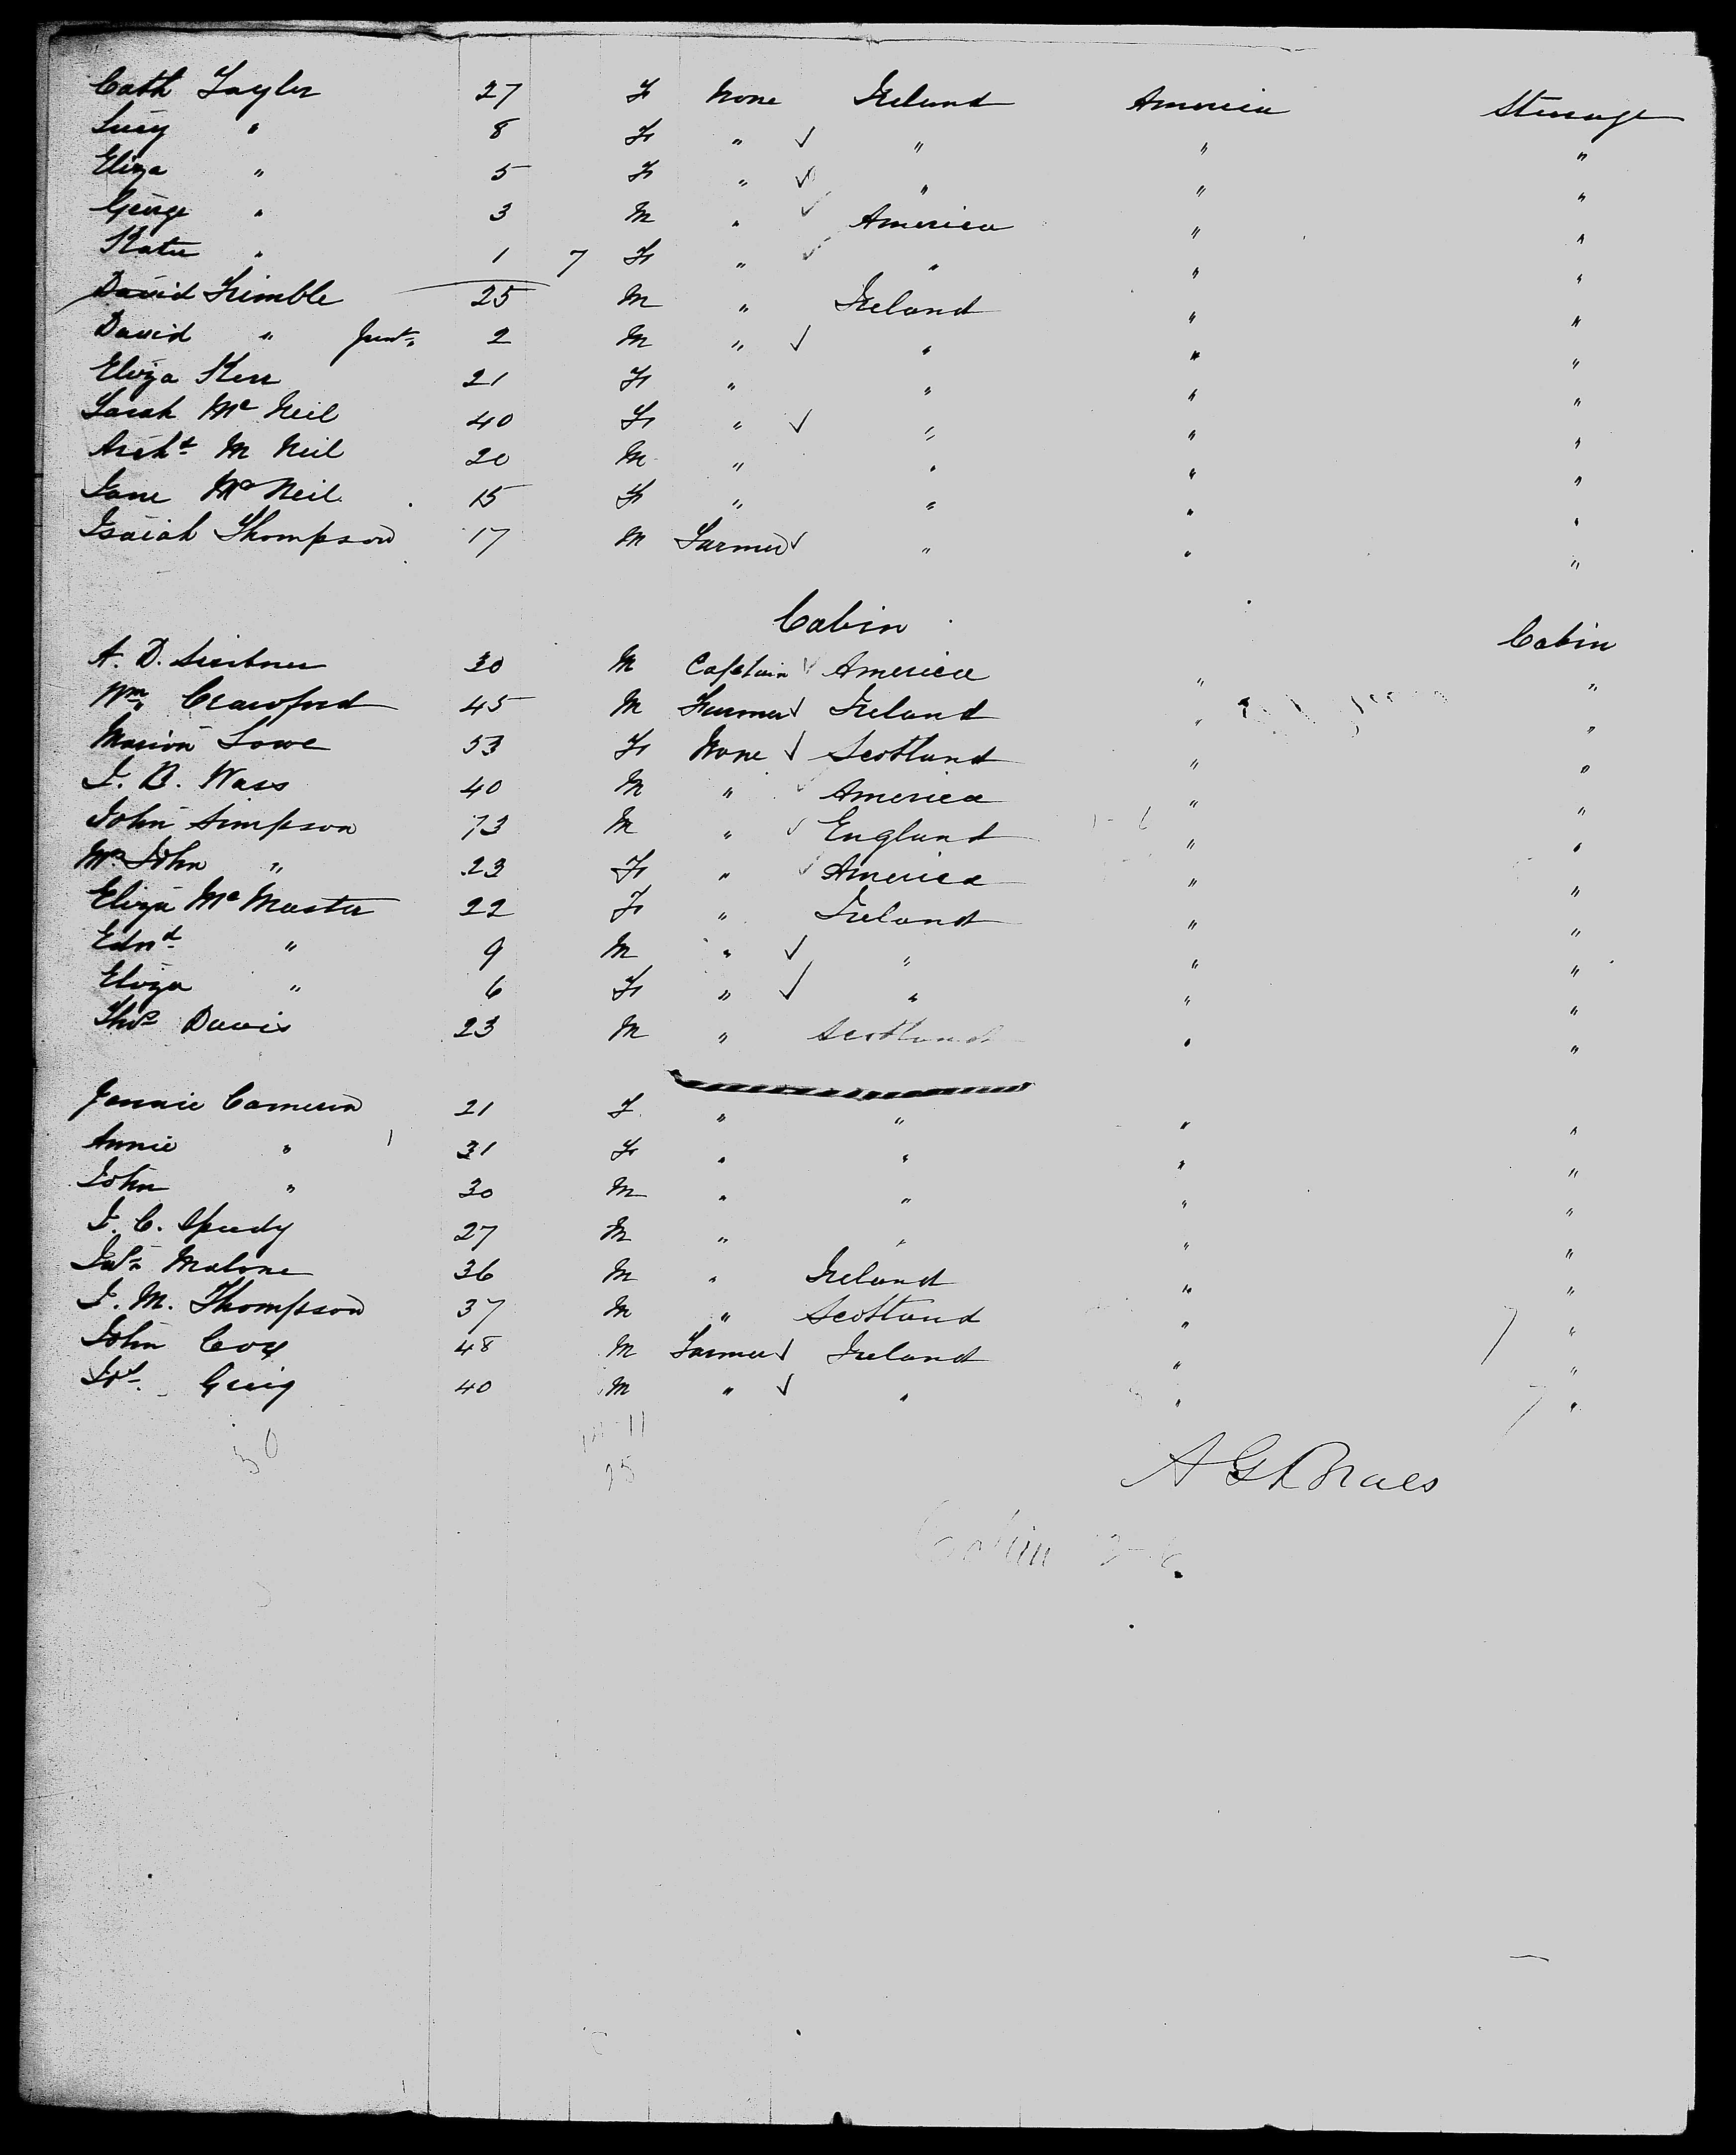 Cath Tayler 27 F None Ireland America Steerage
Lucy " 8 F " ✓ " " "
Eliza " 5 F " ✓ " " "
George " 3 M " ✓ America " "
Kate " 1 7 F " ✓ " " "
David Trimble 25 M " Ireland " "
David " Junr 2 M " ✓ " " "
Eliza Kerr 21 F " " " "
Sarah Mc Neil 40 F " ✓ " " "
Archd M Neil 20 M " " " "
Jane Mc Neil 15 F " " " "
Isaiah Thompson 17 M Farmer ✓ " " "
Cabin
Cabin
A. D. Scribner 30 M Captain ✓ America " "
Wm Crawford 45 M Farmer ✓ Ireland " "
Marion Lowe 53 F None ✓ Scotland " "
J. B. Wass 40 M " ✓ America " "
John Simpson 73 M " ✓ England " "
Mrs John " 23 F " ✓ America " "
Eliza Mc Master 22 F " Ireland " "
Edwd " 9 M " ✓ " " "
Eliza " 6 F " ✓ " " "
Thos Davis 23 M " Scotland " "
Jannie Cameron 21 F " " " "
Annie " 31 F " " " "
John " 30 M " " " "
J. C. Speedy 27 M " " " "
Jas Malone 36 M " Ireland " "
J. M. Thompson 37 M " Scotland " "
John Coy 48 M Farmer ✓ Ireland " "
Greig 40 M " ✓ " " "
30
11
25
Cabin